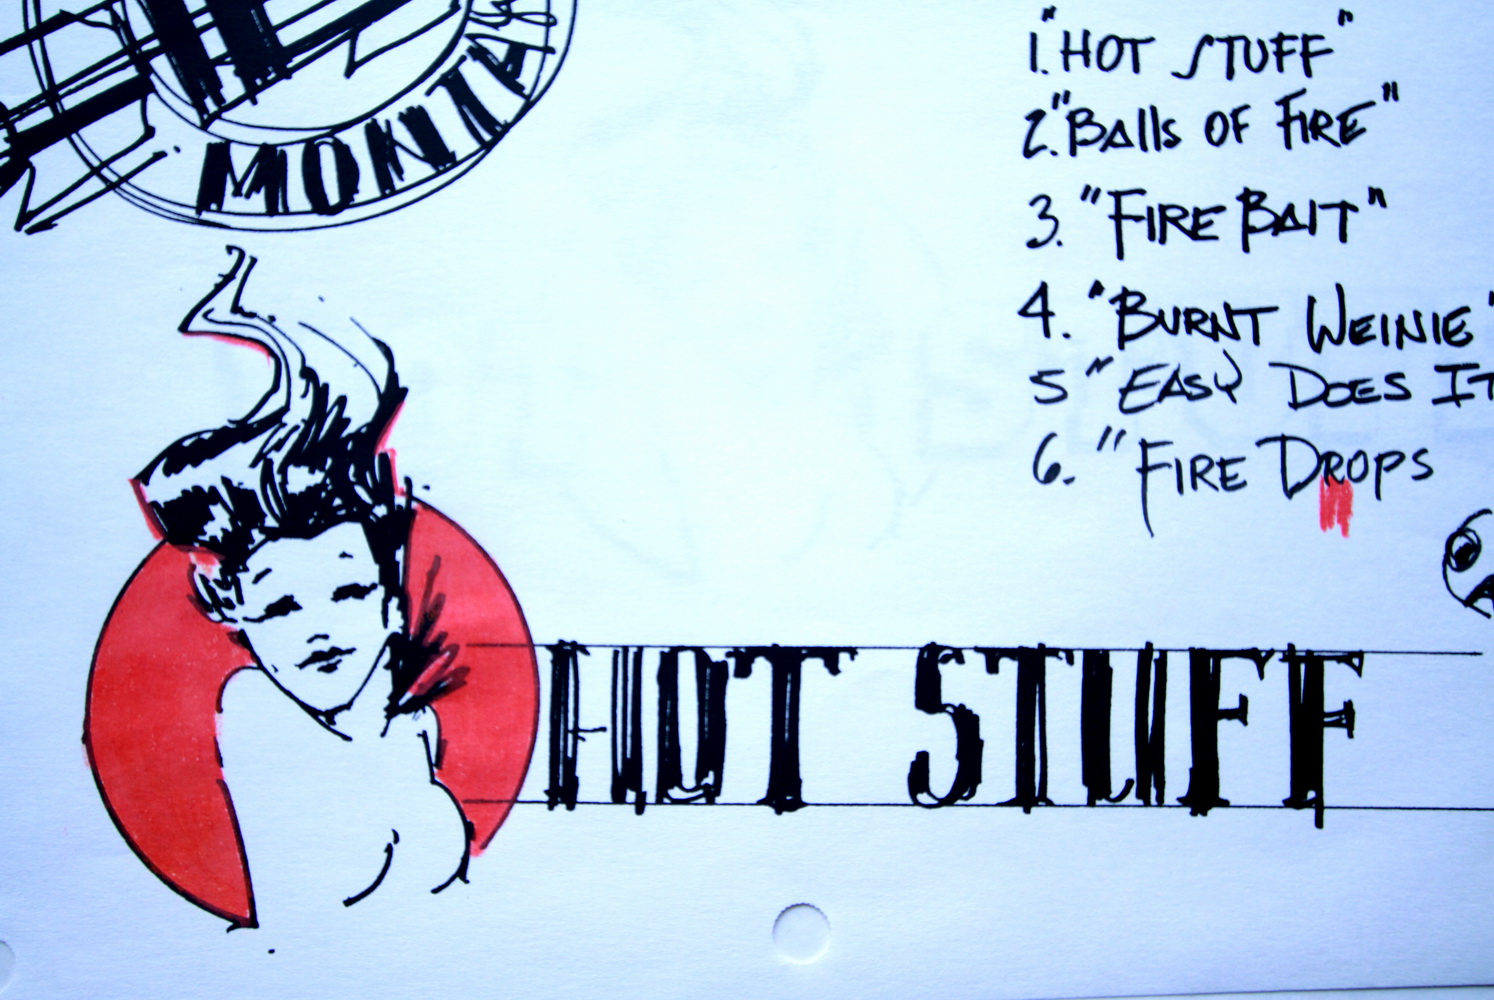 MONTA
1. "HOT STUFF"
2. "Balls OF FIRE"
3. "FIRE BAIT"
4. "BURNT WEINIE"
5 "EASY DOES IT
6. "FIRE DROPS
HOT STUFF